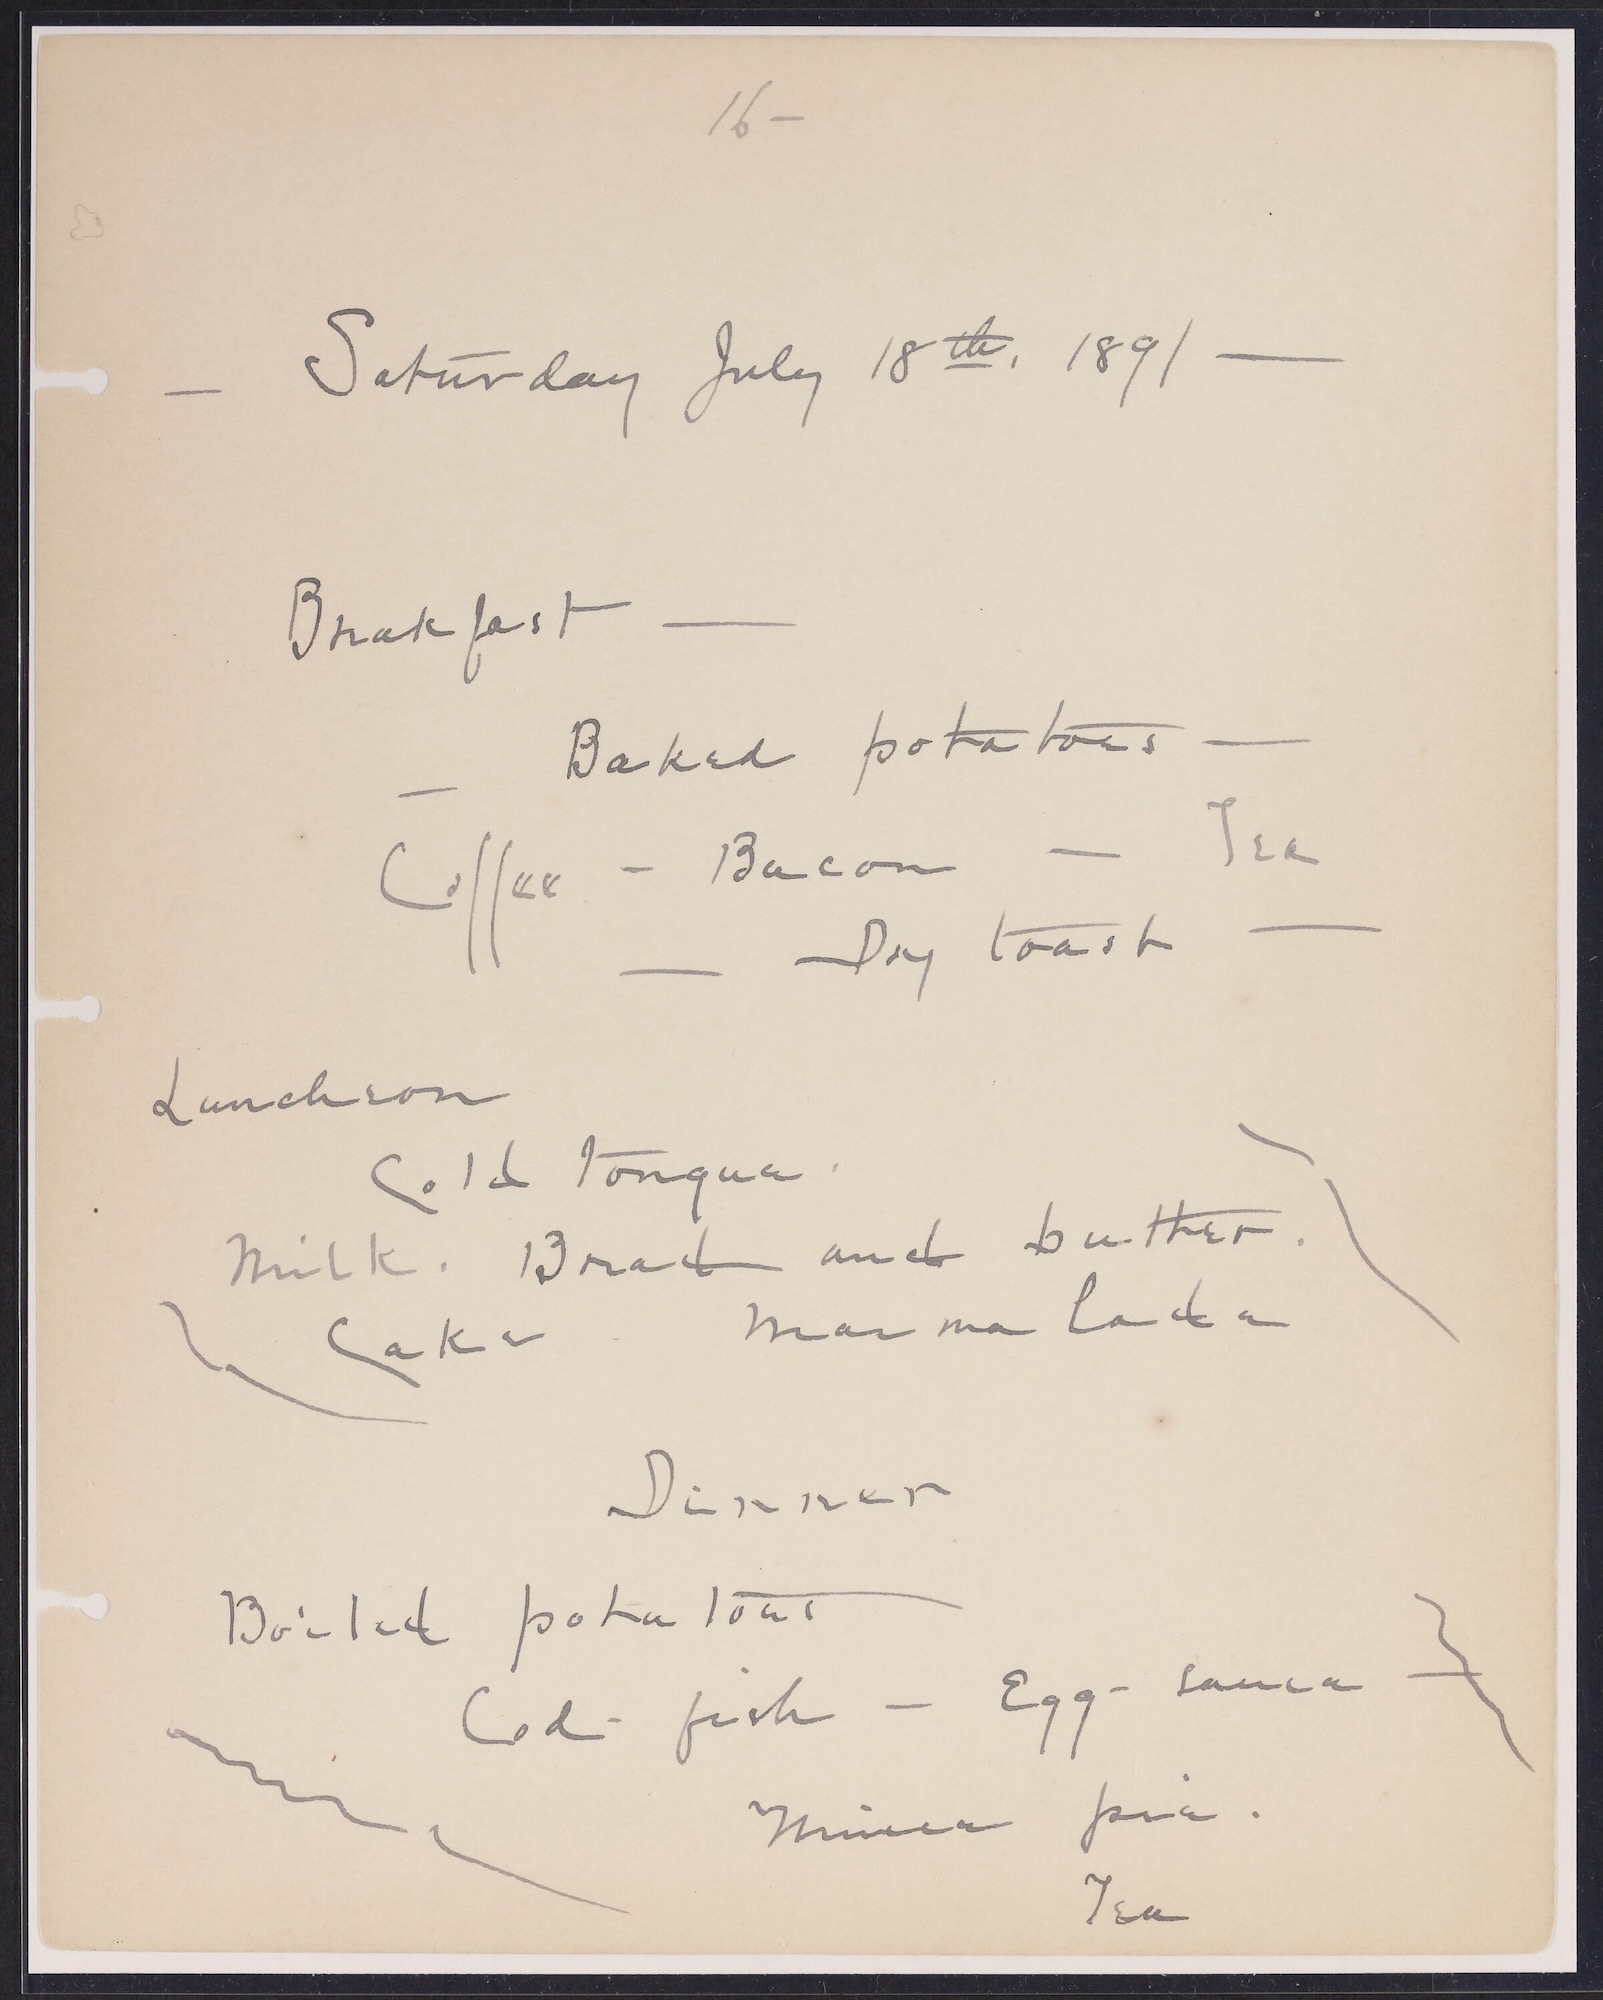 16-
- Saturday July 18th. 1891 -
Breakfast -
- Baked potatoes -
Coffee - Bacon - Tea
- Dry toast -
Luncheon
Cold tongue.
Milk. Bread and butter.
Cake Marmalade
Dinner
Boiled potatoes
Cod-fish - Egg-sauce -
Mince pie.
Tea